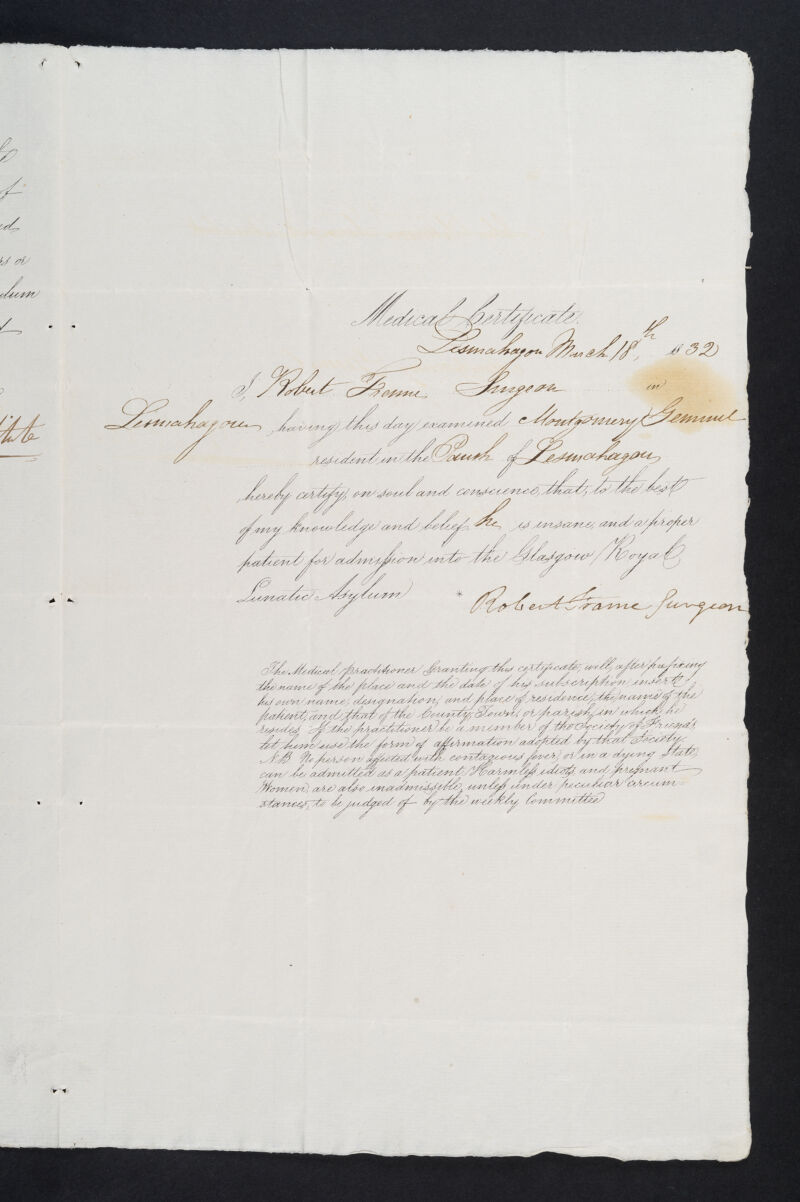 Medical Certificate.
Lesmahagow March 18th, 1832
I, Robert Frame Surgeon in
Lesmahagow, having this day examined Montgomery Gemmel
resident in the Parish of Lesmahagow,
hereby certify, on soul and conscience, that, to the best
of my knowledge and belief he is insane, and a proper
patient for admission into the Glasgow Royal
Lunatic Asylum
* Robert Frame Surgeon
The Medical practitioner Granting this certificate, will, after prefixing
the name of the place and the date of his subscription insert
his own name, designation, and place of residence, the name of the
patient, and that of the County, Town, or parish, in which he
resides. If the practitioner be a member of the Society of Friends,
let him use the form of affirmation adopted by that Society.
N.B. No person affected with contagious fever, or in a dying State,
can be admitted as a patient. Harmless idiots and pregnant
Women, are also inadmissible, unless under peculiar circum-
stances, to be judged of by the weekly Committee
of
rs or
ylum